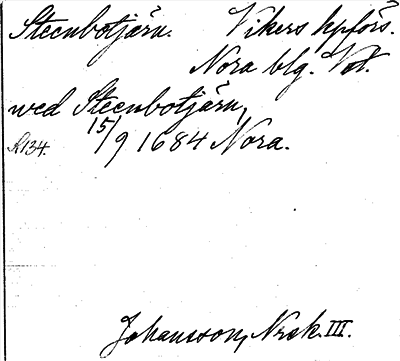 Steenbotjärn. Vikers kpförs.
Nora blg. Vstm.
wed Steenbotjärn,
R134. 15/9 1684 Nora.
Johansson, Nrck. III.